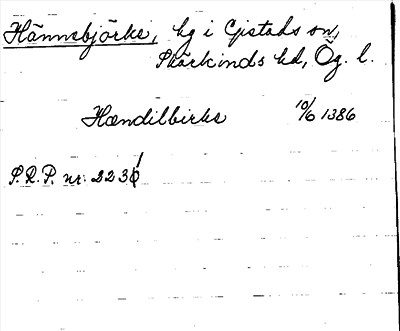 Hännebjörke, by i Gistads sn,
Skärkinds hd, Ög. l.
Hændilbirke 10/6 1386
S.R.P. nr: 2236